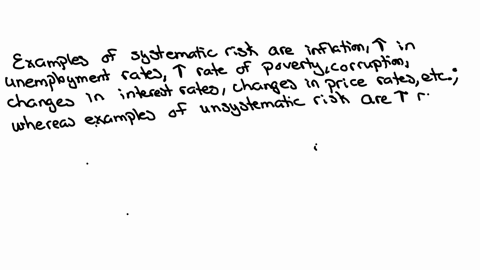 Examples of systematic risk are inflation, ↑ in
unemployment rates, ↑ rate of poverty, corruption,
changes in interest rates, changes in price rates, etc.;
whereas examples of unsystematic risk are ↑ r